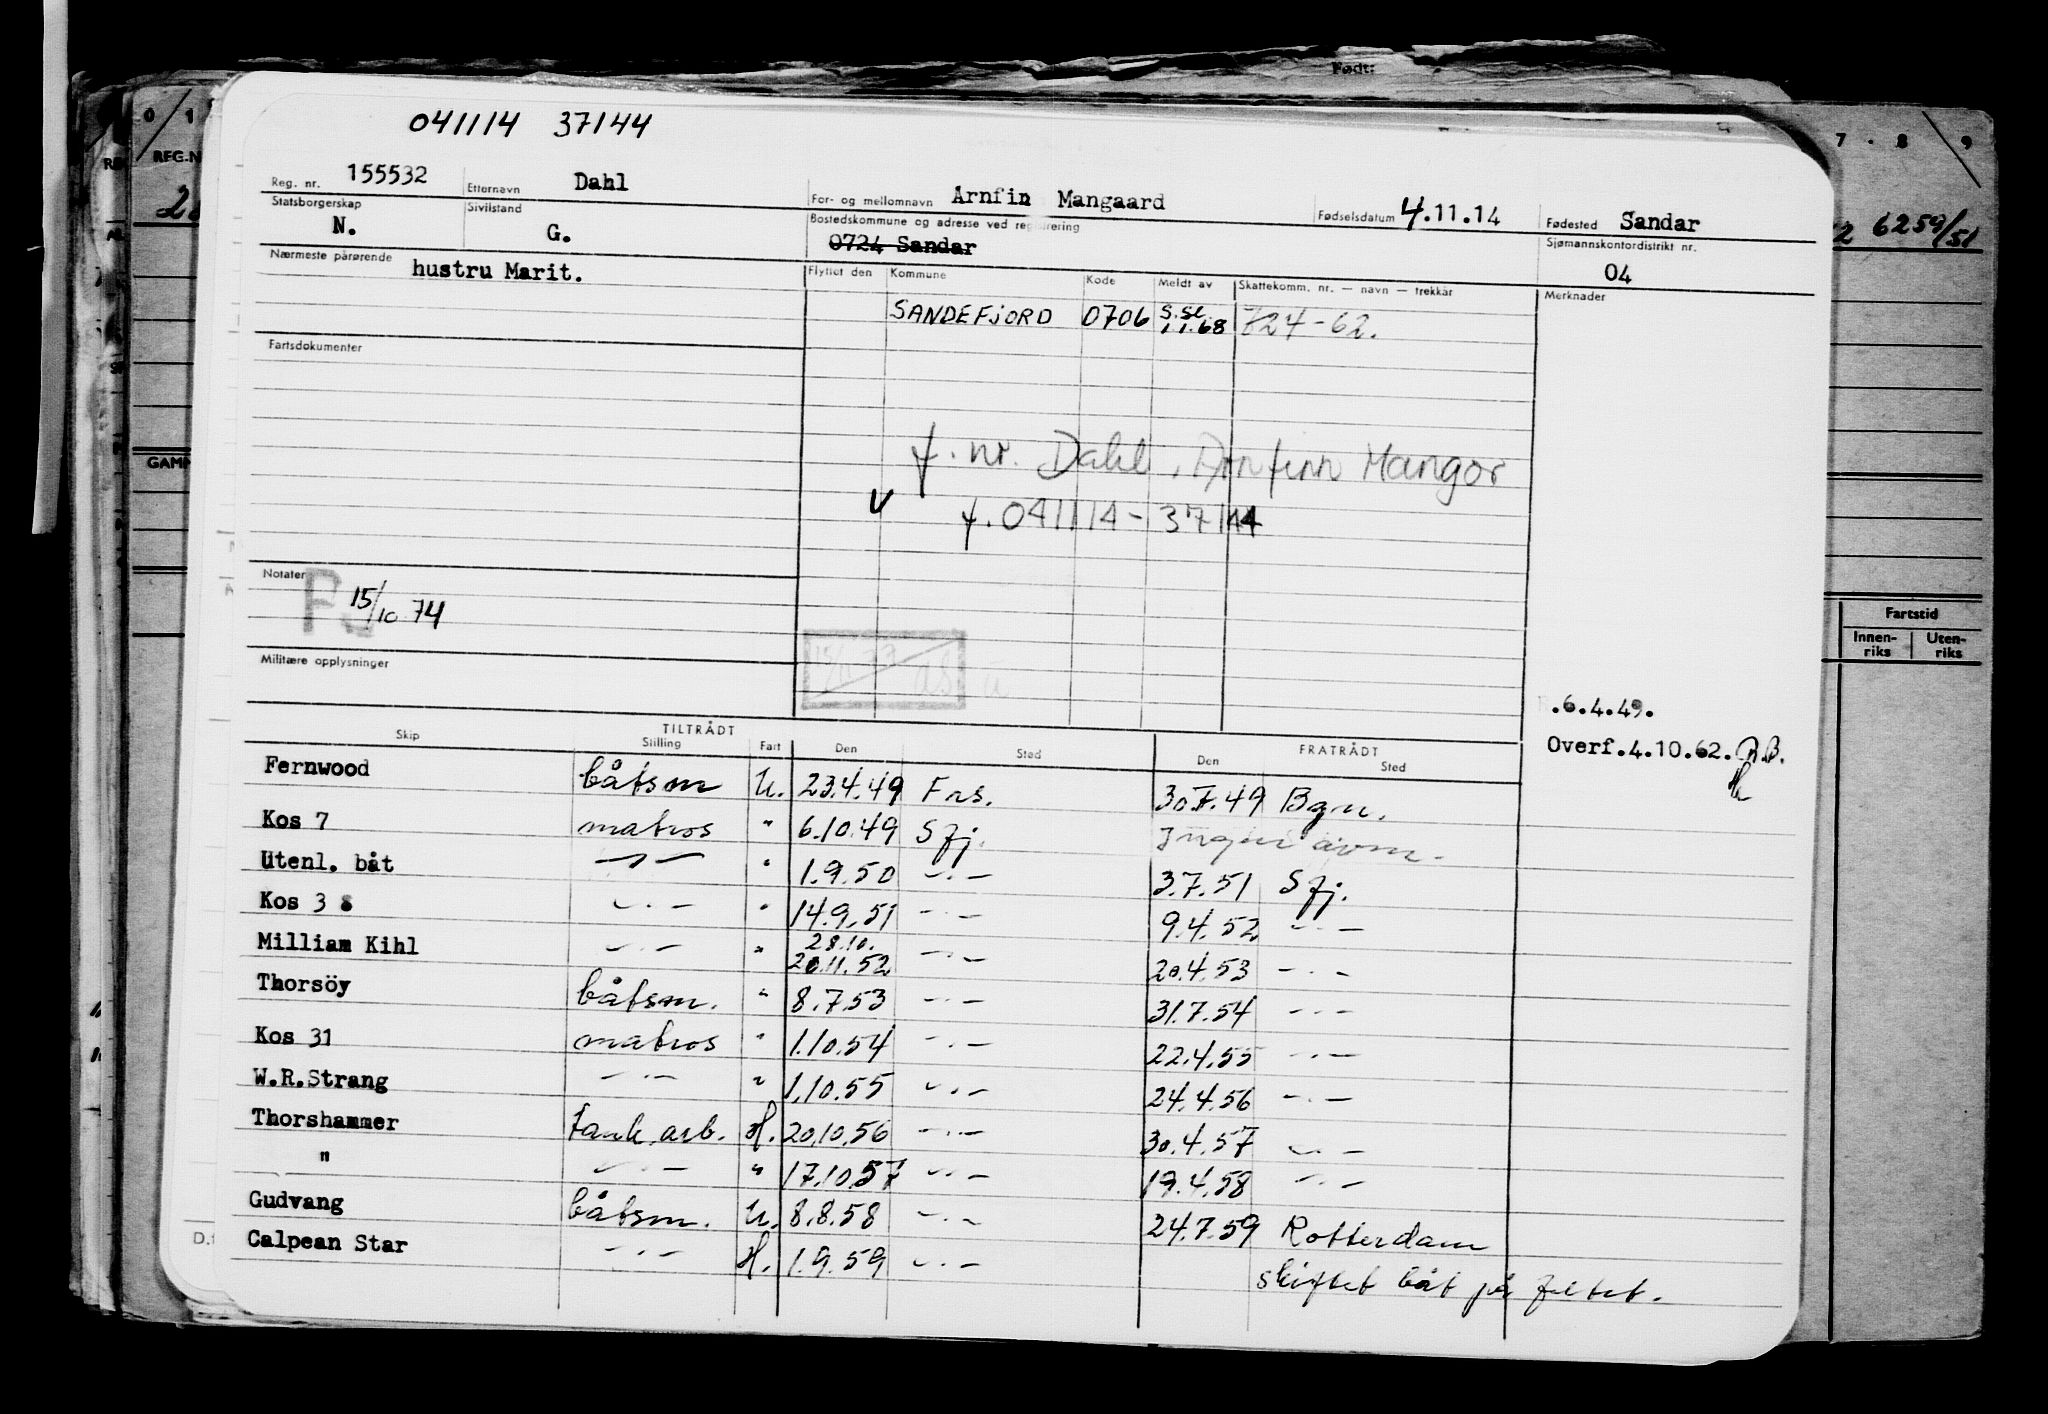 Født:
041114 37144
0 1
7 . 8 9
REG.N
Reg. nr. 155532 Etternavn Dahl For- og mellomnavn Arnfin Mangaard Fødselsdatum 4.11.14 Fødested Sandar
Statsborgerskap N. Sivilstand G. Bostedskommune og adresse ved registrering 0724 Sandar Sjømannskontordistrikt nr. 04
6259/51
Nærmeste pårørende hustru Marit. Flyttet den Kommune Kode Meldt av Skattekomm. nr. — navn — trekkår Merknader
SANDEFJORD 0706 S.se. 1.1.68 724-62.
Fartsdokumenter
f. nr. Dahl, Arnfinn Mangor
GAMM
V f. 041114 - 37144
Notater 15/10 74
Fartstid
Innen-riks Uten-riks
Militære opplysninger
.6.4.49.
Overf.4.10.62. B.B.
TILTRÅDT FRATRÅDT
Skip Stilling Fart Den Sted Den Sted
Fernwood båtsm U. 23.4.49 Fns. 30.7.49 Bgn.
Kos 7 matros " 6.10.49 Sfj. Ingen avm.
Utenl. båt —"— " 1.9.50 —"— 3.7.51 Sfj.
Kos 3 —"— " 14.9.51 —"— 9.4.52 —"—
Milliam Kihl —"— " 28.10. 20.11.52 —"— 20.4.53 —"—
Thorsöy båtsm. " 8.7.53 —"— 31.7.54 —"—
Kos 31 matros " 1.10.54 —"— 22.4.55 —"—
W.R.Strang —"— " 1.10.55 —"— 24.4.56 —"—
Thorshammer tank.arb. H. 20.10.56 —"— 30.4.57 —"—
" —"— " 17.10.57 —"— 19.4.58 —"—
Gudvang båtsm. U. 8.8.58 —"— 24.7.59 Rotterdam
Calpean Star —"— H. 1.9.59 —"— skiftet båt på feltet.